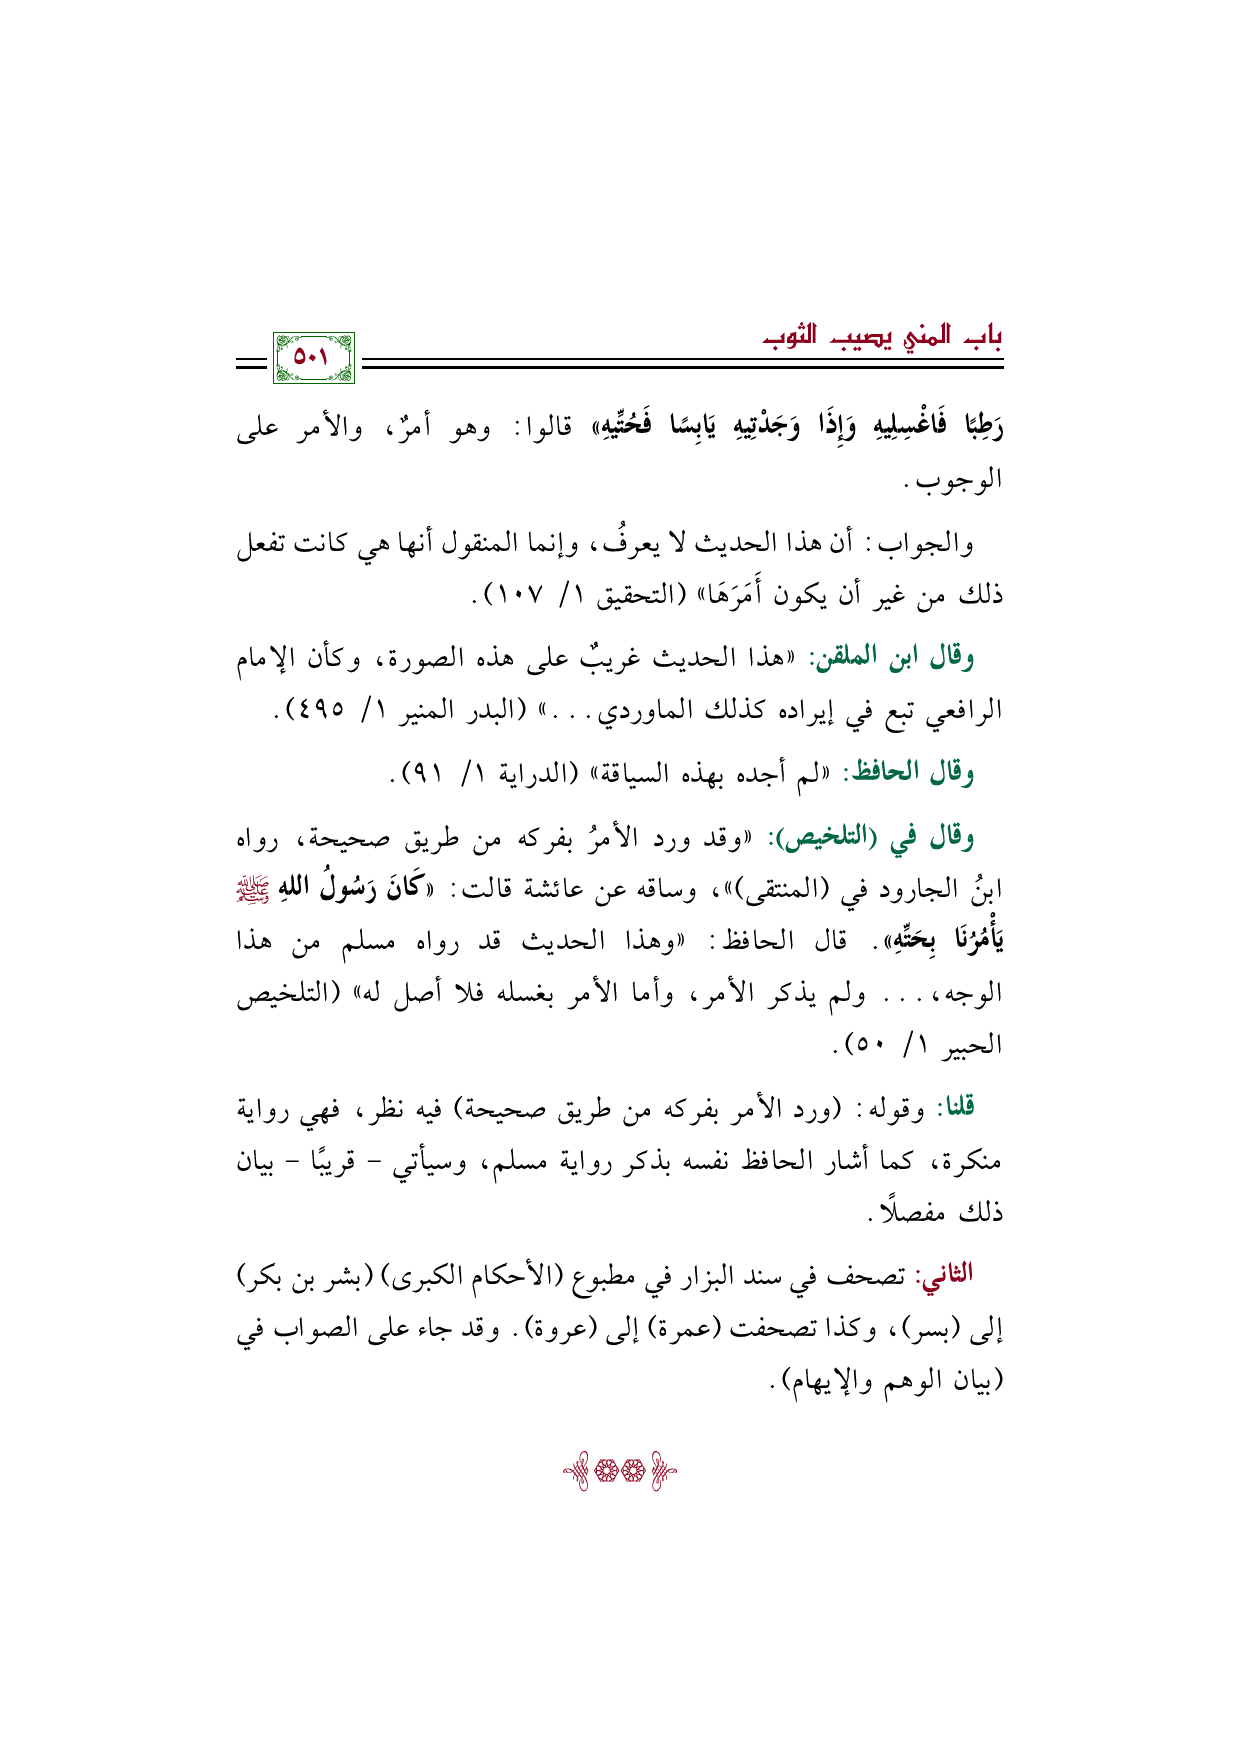 باب المني يصيب الثوب
٥٠١
رَطِبًا فَاغْسِلِيهِ وَإِذَا وَجَدْتِيهِ يَابِسًا فَحُتِّيهِ» قالوا: وهو أمرٌ، والأمر على
الوجوب.
والجواب: أن هذا الحديث لا يعرفُ، وإنما المنقول أنها هي كانت تفعل
ذلك من غير أن يكون أَمَرَهَا» (التحقيق ١/ ١٠٧).
وقال ابن الملقن: «هذا الحديث غريبٌ على هذه الصورة، وكأن الإمام
الرافعي تبع في إيراده كذلك الماوردي...» (البدر المنير ١/ ٤٩٥).
وقال الحافظ: «لم أجده بهذه السياقة» (الدراية ١/ ٩١).
وقال في (التلخيص): «وقد ورد الأمرُ بفركه من طريق صحيحة، رواه
ابنُ الجارود في (المنتقى)»، وساقه عن عائشة قالت: «كَانَ رَسُولُ اللهِ ﷺ
يَأْمُرُنَا بِحَتِّهِ». قال الحافظ: «وهذا الحديث قد رواه مسلم من هذا
الوجه،... ولم يذكر الأمر، وأما الأمر بغسله فلا أصل له» (التلخيص
الحبير ١/ ٥٠).
قلنا: وقوله: (ورد الأمر بفركه من طريق صحيحة) فيه نظر، فهي رواية
منكرة، كما أشار الحافظ نفسه بذكر رواية مسلم، وسيأتي - قريبًا - بيان
ذلك مفصلًا.
الثاني: تصحف في سند البزار في مطبوع (الأحكام الكبرى) (بشر بن بكر)
إلى (بسر)، وكذا تصحفت (عمرة) إلى (عروة). وقد جاء على الصواب في
(بيان الوهم والإيهام).